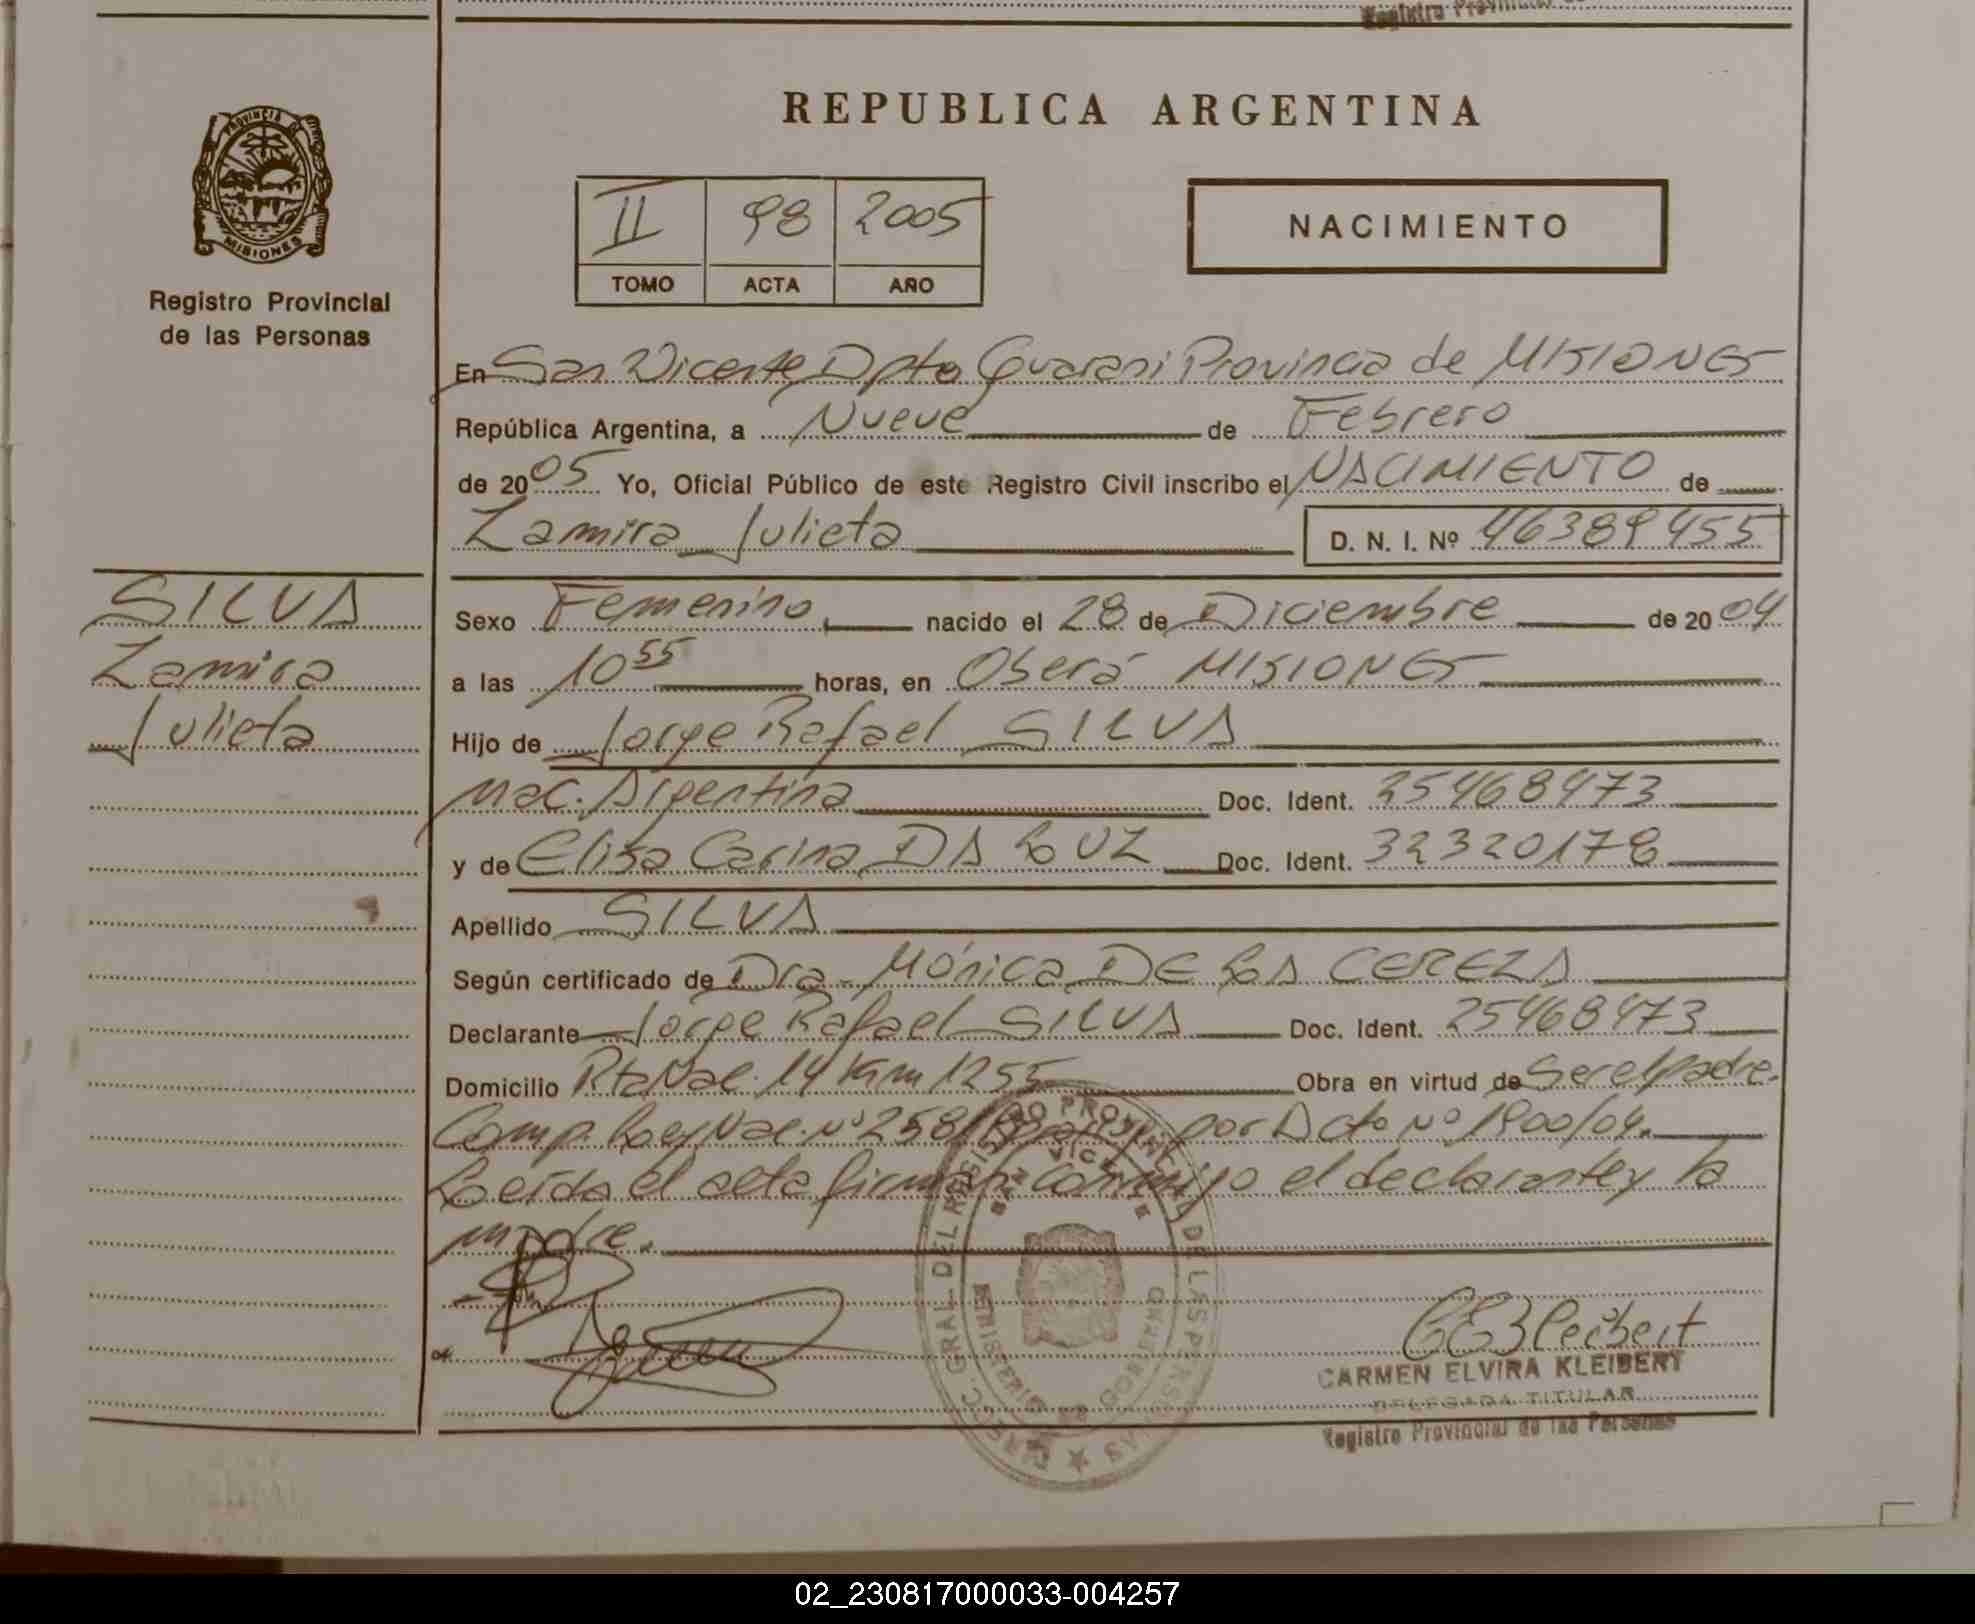 Registro Provincial de
REPUBLICA ARGENTINA
PROVINCIA DE
MISIONES
Registro Provincial
de las Personas
II 98 2005
TOMO ACTA AÑO
NACIMIENTO
En San Vicente Dpto Guarani Provincia de MISIONES
República Argentina, a Nueve de Febrero
de 2005 Yo, Oficial Público de este Registro Civil inscribo el NACIMIENTO de
Zamira Julieta D. N. I. Nº 46389455
SILVA
Zamira
Julieta
Sexo Femenino nacido el 28 de Diciembre de 2004
a las 10 55 horas, en Oberá MISIONES
Hijo de Jorge Rafael SILVA
Nac. Argentina Doc. Ident. 25468473
y de Elisa Carina DA LUZ Doc. Ident. 32320178
Apellido SILVA
Según certificado de Dra. Mónica DE LA CEREZA
Declarante Jorge Rafael SILVA Doc. Ident. 25468473
Domicilio Rta Nac. 14 Km 1255 Obra en virtud de Ser el padre.
Comp. Ley Nac. nº 258 por Dcto Nº 1900/04.
Leída el acta firman conmigo el declarante y la
madre.
DIRECC. GRAL. DEL REGISTRO PROVINCIAL DE LAS PERSONAS
SAN VICENTE
MINISTERIO DE GOBIERNO
CARMEN ELVIRA KLEIBERT
DELEGADA TITULAR
Registro Provincial de las Personas
02_230817000033-004257